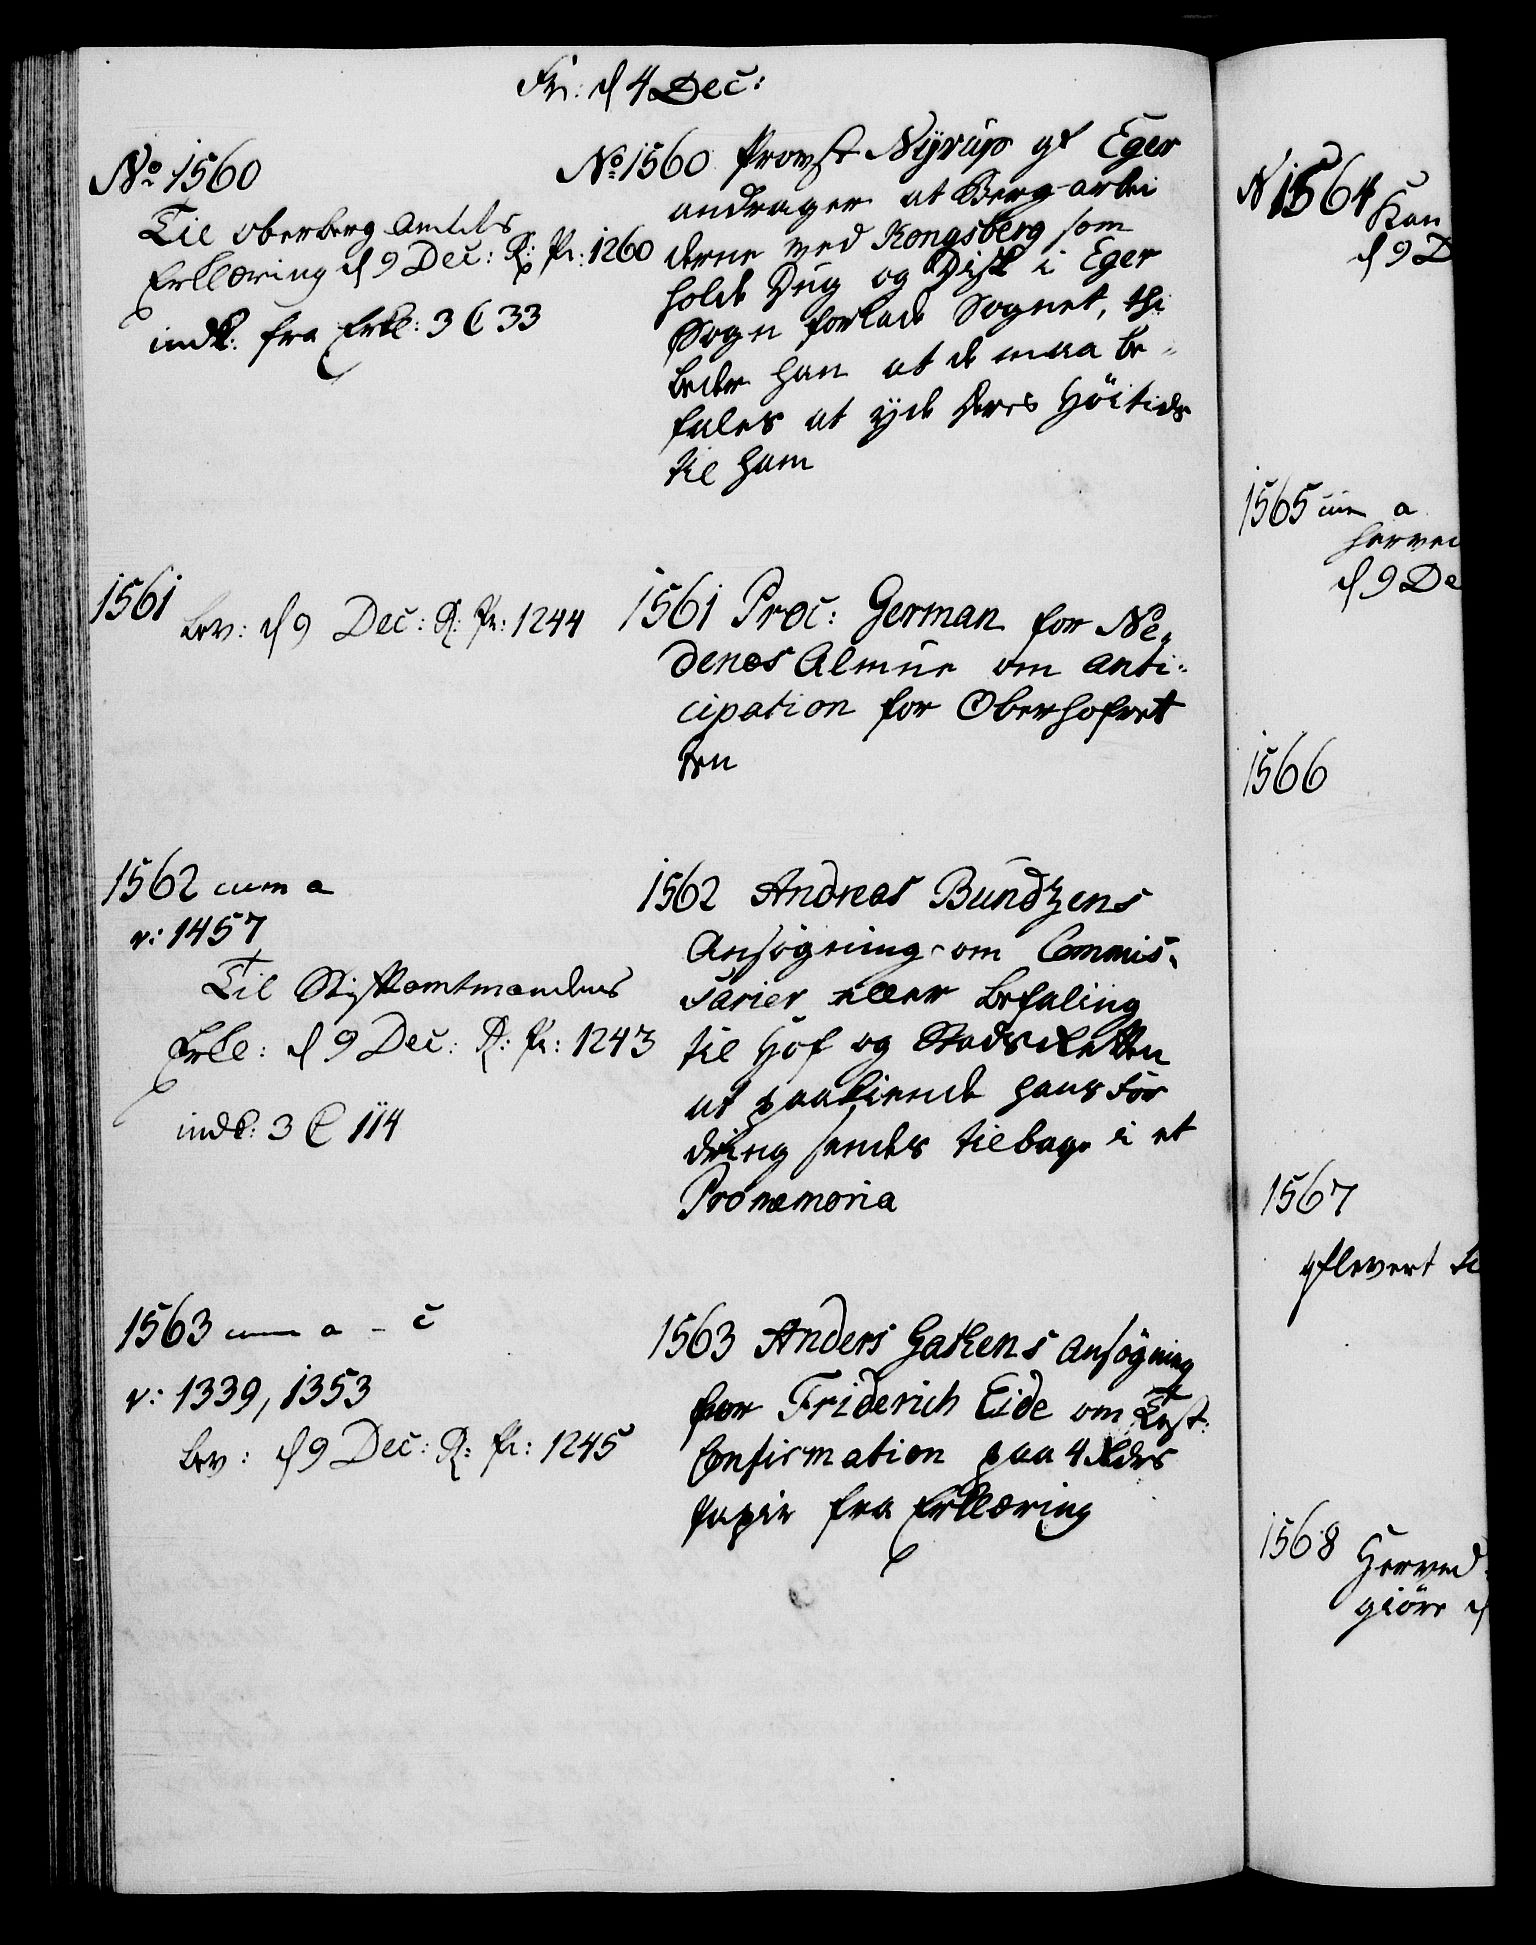 Fr: d 4 Dec:
No 1560
Til Oberberg Amtets
Erklæring d 9 Dec: R: Pr: 1260
indk: fra Erkl: 3 C 33
No 1560 Provst Nyrup på Eger
andrager at Berg-arbei
derne ved Kongsberg som
holde Dug og Disk i Eger
Sogn forlade Sognet, thi
beder han at de maa be-
fales at yde deres Höitider
til ham
1561
bev: d 9 Dec: R: Pr: 1244
1561 Proc: German for Ne-
denæs Almue om anti-
cipation for Oberhofret
ten
1562 cum a
v: 1457
Til Stiftamtmandens
Erkl: d 9 Dec: R: Pr: 1243
indk: 3 C 114
1562 Andreas Bundzens
Ansögning om Commis-
sarier eller befaling
til Hof og Stads Retten
at paakiende hans for
dring sendes tilbage i et
Promemoria
1563 cum a - c
v: 1339, 1353
bev: d 9 Dec: R: Pr: 1245
1563 Anders Gaskens ansögning
for Friderich Eide om Test:
Confirmation paa 4 rdrs
papir fra Erklæring
N 1564 Kan
d 9 D
1565 cum a
herved
d 9 De
1566
1567
afleveret ti
1568 Herved
giöre d